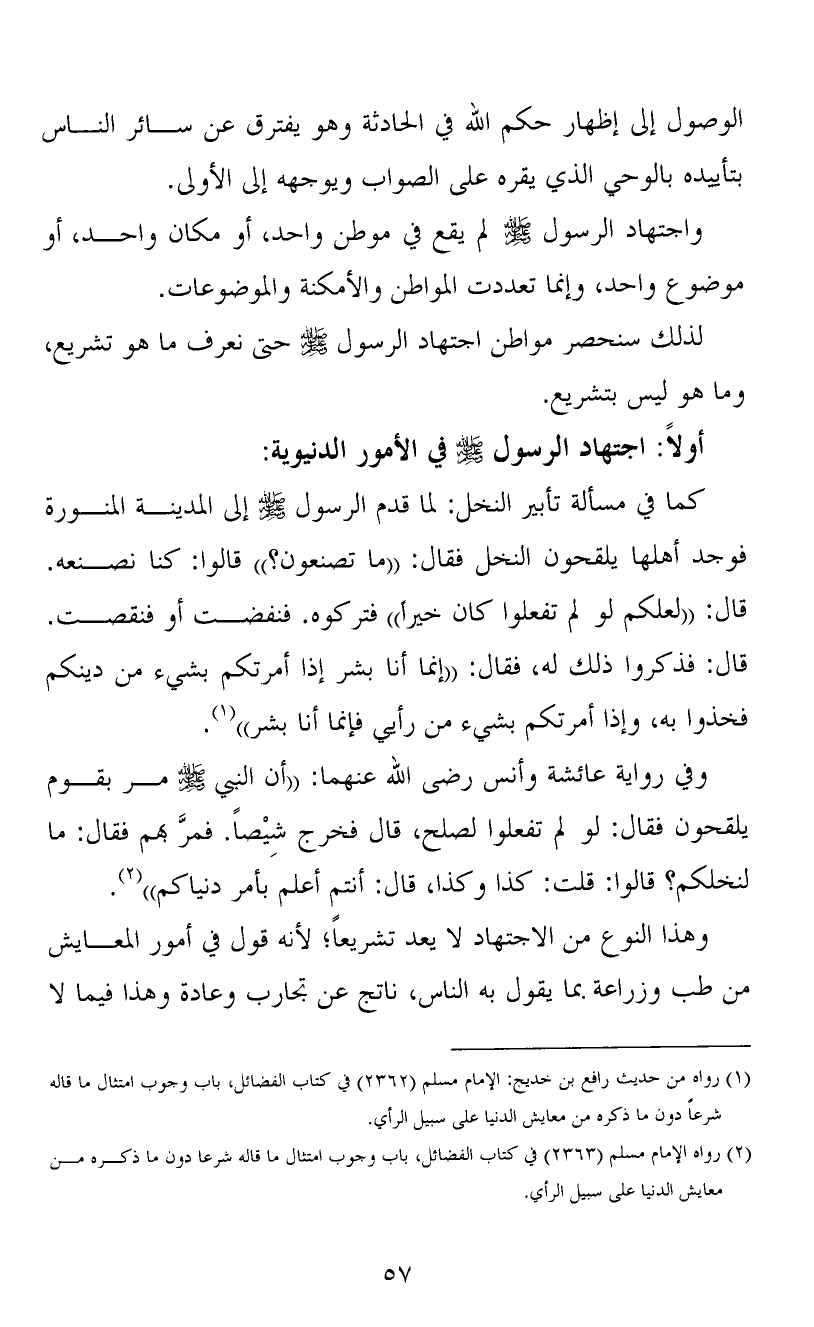 الوصول إلى إظهار حكم الله في الحادثة وهو يفترق عن سائر الناس
بتأييده بالوحي الذي يقره على الصواب ويوجهه إلى الأولى.
واجتهاد الرسول ﷺ لم يقع في موطن واحد، أو مكان واحد، أو
موضوع واحد، وإنما تعددت المواطن والأمكنة والموضوعات.
لذلك سنحصر مواطن اجتهاد الرسول ﷺ حتى نعرف ما هو تشريع،
وما هو ليس بتشريع.
أولاً: اجتهاد الرسول ﷺ في الأمور الدنيوية:
كما في مسألة تأبير النخل: لما قدم الرسول ﷺ إلى المدينة المنورة
فوجد أهلها يلقحون النخل فقال: ((ما تصنعون؟)) قالوا: كنا نصنعه.
قال: ((لعلكم لو لم تفعلوا كان خيراً)) فتركوه. فنفضت أو فنقصت.
قال: فذكروا ذلك له، فقال: ((إنما أنا بشر إذا أمرتكم بشيء من دينكم
فخذوا به، وإذا أمرتكم بشيء من رأيي فإنما أنا بشر))(١).
وفي رواية عائشة وأنس رضى الله عنهما: ((أن النبي ﷺ مر بقوم
يلقحون فقال: لو لم تفعلوا لصلح، قال فخرج شِيْصاً. فمرَّ بهم فقال: ما
لنخلكم؟ قالوا: قلت: كذا وكذا، قال: أنتم أعلم بأمر دنياكم))(٢).
وهذا النوع من الاجتهاد لا يعد تشريعاً؛ لأنه قول في أمور المعايش
من طب وزراعة بما يقول به الناس، ناتج عن تجارب وعادة وهذا فيما لا
(١) رواه من حديث رافع بن خديج: الإمام مسلم (٢٣٦٢) في كتاب الفضائل، باب وجوب امتثال ما قاله
شرعاً دون ما ذكره من معايش الدنيا على سبيل الرأي.
(٢) رواه الإمام مسلم (٢٣٦٣) في كتاب الفضائل، باب وجوب امتثال ما قاله شرعا دون ما ذكره من
معايش الدنيا على سبيل الرأي.
٥٧